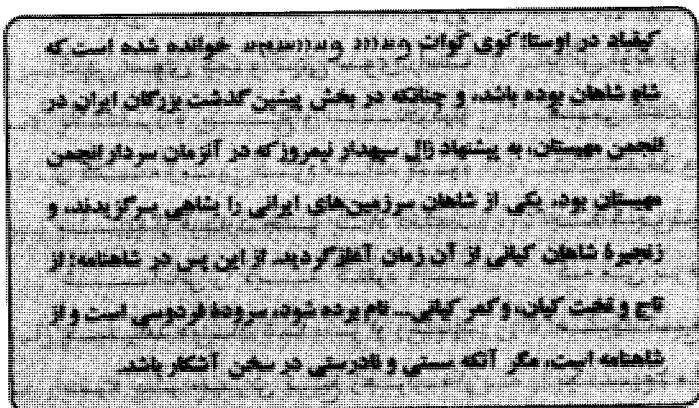 کیقباد در اوستا: کوی کوات 𐬐𐬀𐬎𐬎𐬌 𐬐𐬀𐬎𐬎𐬁𐬙𐬀 خوانده شده است که
شاه شاهان بوده باشد، و چنانکه در بخش پیشین گذشت بزرگان ایران در
انجمن مهستان، به پیشنهاد زال سپهدار نیمروز که در آنزمان سردار انجمن
مهستان بود، یکی از شاهان سرزمین‌های ایرانی را بشاهی برگزیدند، و
زنجیرهٔ شاهان کیانی از آن زمان آغاز گردید. از این پس در شاهنامه: از
تاج و تخت کیان، و کمر کیانی... نام برده شود، سرودهٔ فردوسی است و از
شاهنامه است، مگر آنکه سستی و نادرستی در سخن آشکار باشد.